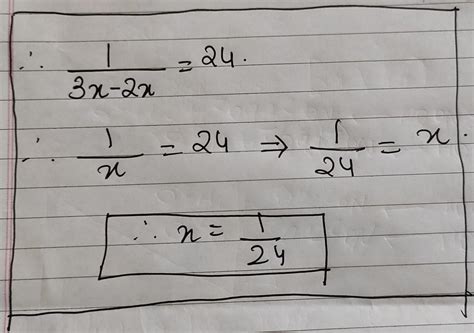 ∴ 1/(3x-2x) = 24.
∴ 1/x = 24 ⇒ 1/24 = x.
∴ x = 1/24